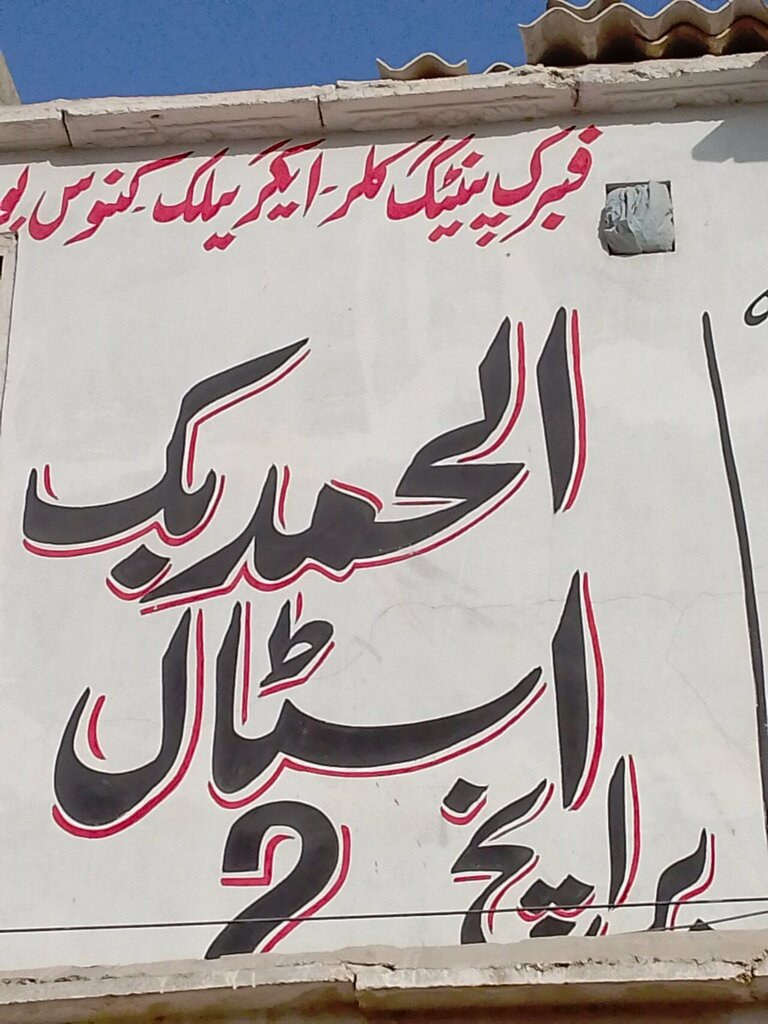 فیبرک پینٹنگ کلر۔ ایکریلک۔ کینوس۔
الحمد بک
اسٹال
برانچ 2